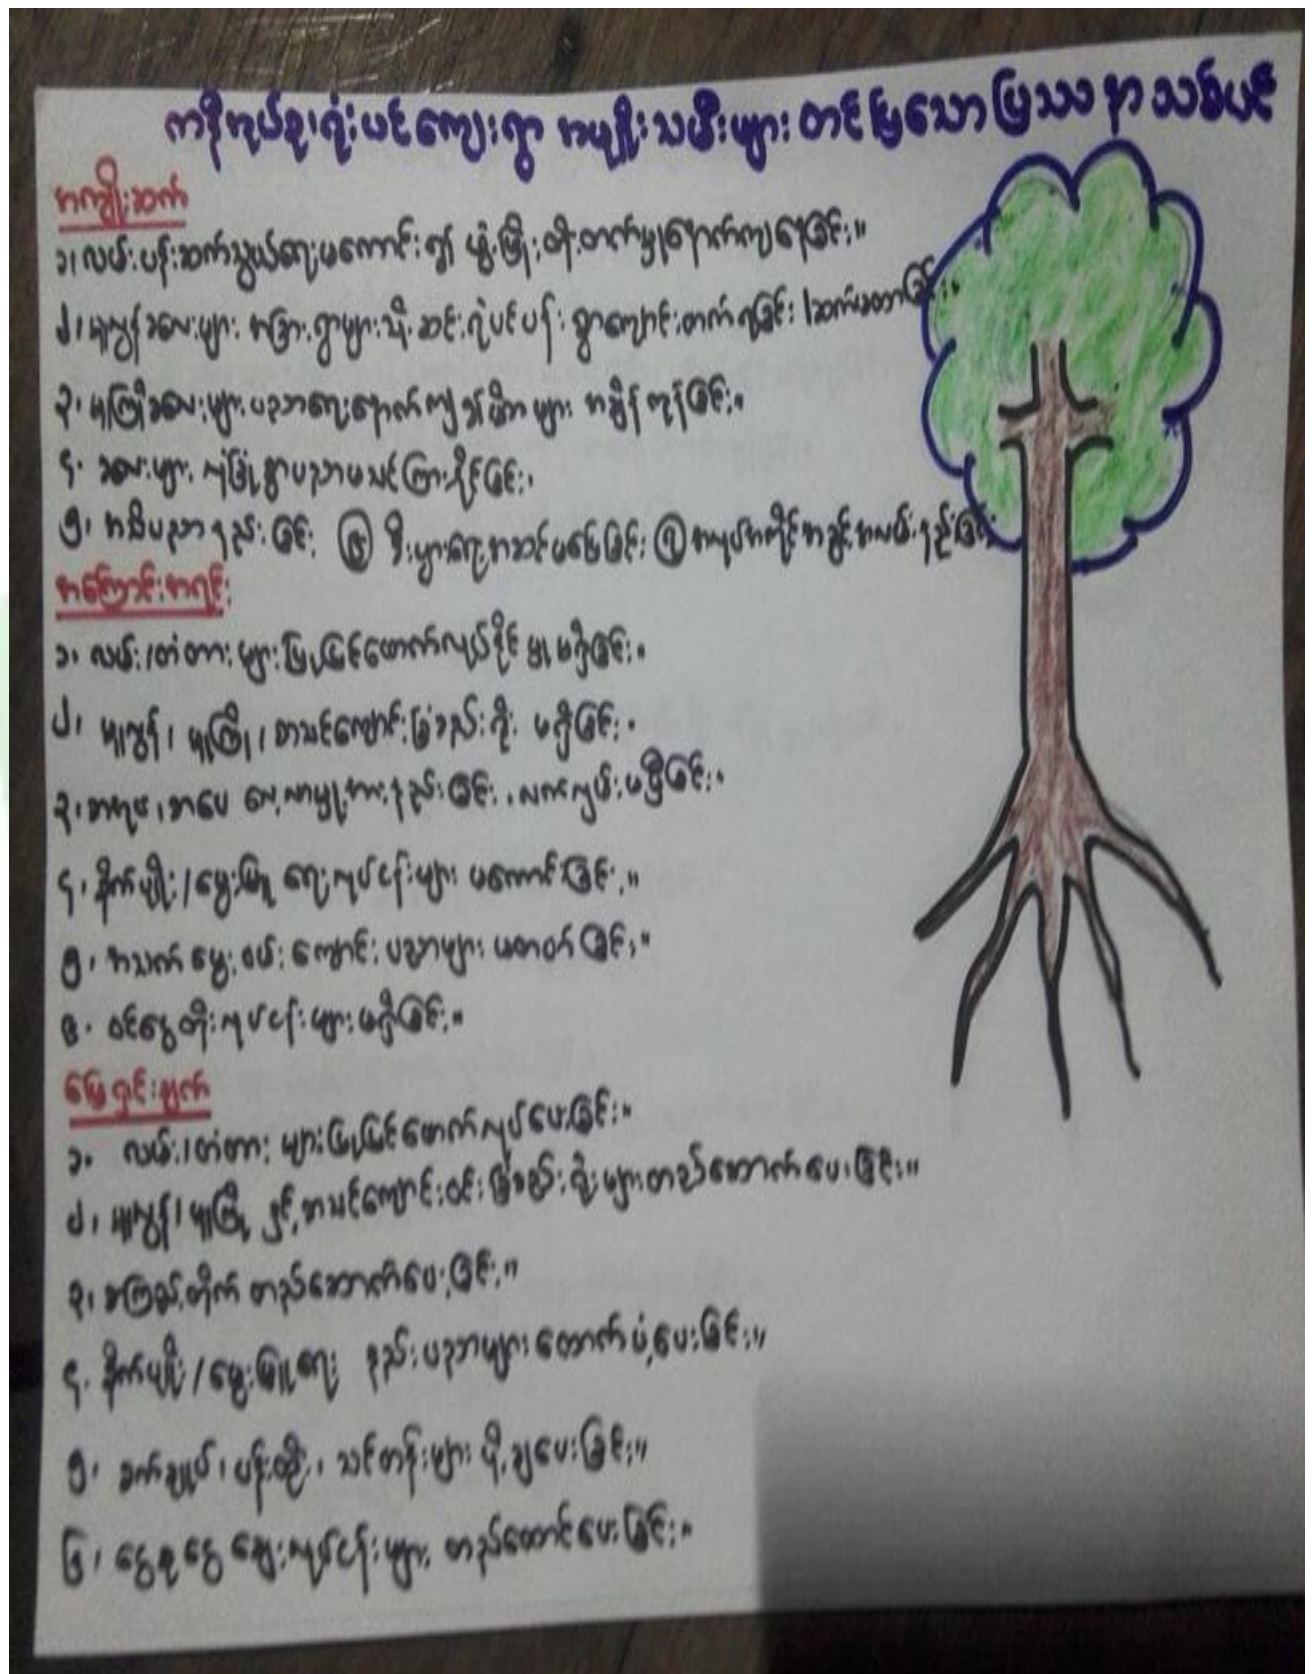 ကနီကုယ်စု၊ ရုံးပင်ကျေးရွာ အမျိုးသမီးများ တင်ပြသော ပြဿနာ သစ်ပင်
အကျိုးဆက်
၁၊ လမ်းပန်းဆက်သွယ်ရေးမကောင်း၍ ဖွံ့ဖြိုးတိုးတက်မှုနောက်ကျနေခြင်း။
၂၊ မူလွန်ခလေးများ အခြားရွာများသို့ ဆင်းရဲပင်ပန်းစွာကျောင်းတက်ရခြင်း၊
၃၊ မူကြိုခလေးများ ပညာရေးနောက်ကျ၍ မိဘများ အချိန်ကုန်ခြင်း။
၄၊ ခလေးများ လုံခြုံစွာပညာမသင်ကြားနိုင်ခြင်း၊
၅၊ အသိပညာနည်းခြင်း ⑥ စီးပွားရေးအဆင်မပြေခြင်း ⑦ အလုပ်အကိုင်အခွင့်အလမ်းနည်းခြင်း
အကြောင်းအရင်း
၁၊ လမ်း/တံတားများပြုပြင်ဖောက်လုပ်နိုင်မှု မရှိခြင်း။
၂၊ မူလွန်၊ မူကြို၊ စာသင်ကျောင်းခြံစည်းရိုး မရှိခြင်း။
၃၊ ဗဟုသုတ စာပေ လေ့လာမှုအားနည်းခြင်း၊ မရှိခြင်း။
၄၊ စိုက်ပျိုး/မွေးမြူရေးလုပ်ငန်းများ မကောင်းခြင်း။
၅၊ အသက်မွေးဝမ်းကျောင်းပညာများ မတတ်ခြင်း။
၆၊ ဝင်ငွေတိုးလုပ်ငန်းများမရှိခြင်း။
ဖြေရှင်းချက်
၁၊ လမ်း/တံတား များပြုပြင်ဖောက်လုပ်ပေးခြင်း။
၂၊ မူလွန်၊ မူကြို နှင့် စာသင်ကျောင်းဝင်းခြံစည်းရိုးများတည်ဆောက်ပေးခြင်း။
၃၊ စာကြည့်တိုက် တည်ဆောက်ပေးခြင်း။
၄၊ စိုက်ပျိုး/မွေးမြူရေး နည်းပညာများထောက်ပံ့ပေးခြင်း။
၅၊ စက်ချုပ်၊ ပန်းထိုး၊ သင်တန်းများ ပို့ချပေးခြင်း။
၆၊ ငွေစုငွေချေးလုပ်ငန်းများ တည်ထောင်ပေးခြင်း။